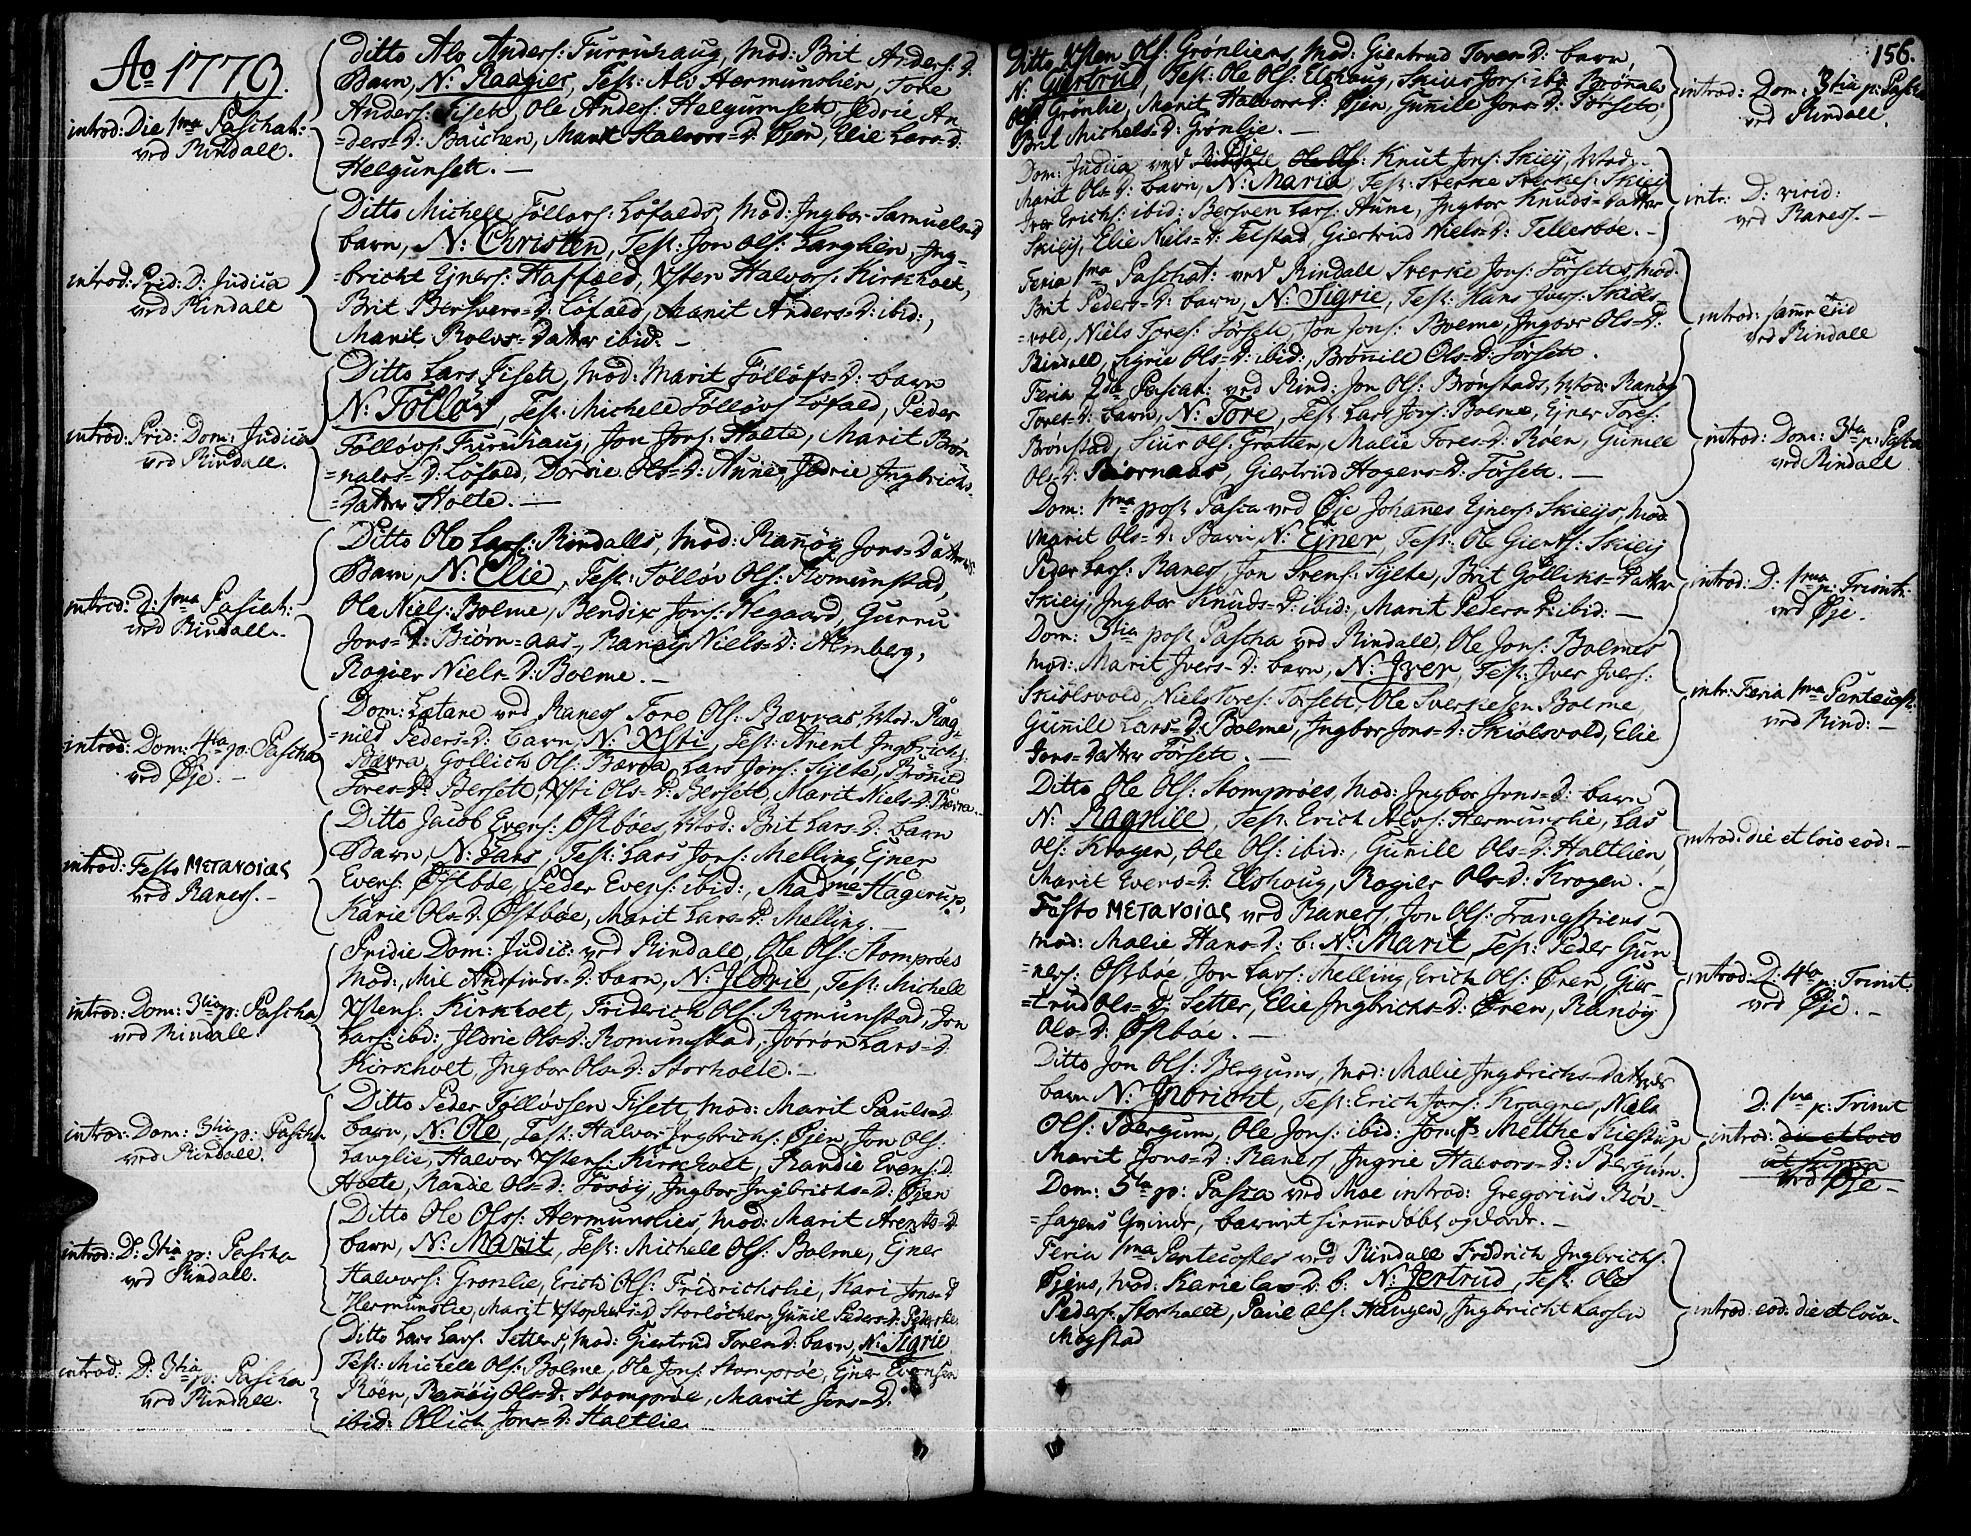 Ao 1770.
introd: Die 1ma Paschat:
ved Rindall.
Ditto Alv Anders: Furruhaug, Mod: Brit Anders: D.
Barn, N: Raagier, Test: Ali Hermunslien, Tore
Anders: Fiseth, Ole Anders: Helgumseth, Jldrie An
=ders=D: Baichen, Marit Halvors=D: Øien, Elie Lars=D:
Helgunseth. —
introd: Prid: D: Judica
ved Rindall
Ditto Michell Föllovs: Löfalds, Mod: Ingbor Samuels=D
barn, N: Christen, Test: Jon Ols: Langlien, Ing=
=bricht Ejners: Haffald, Xsten Halvors: Kirkholt,
Brit Bersvens=D: Löfald, Marit Anders=D: ibid:,
Marit Rolvs=Datter ibid: —
introd: Prid: Dom: Judica
ved Rindall.
Ditto Lars Fiseth, Mod: Marit Föllöfs=D: barn
N: Föllöv, Test: Michell Föllövs Löfald, Peder
Föllövs: Furuhaug, Jon Jons: Holte, Marit Brön
=nalvs=D: Löfald, Dordie Ols=D: Aune, Jldrie Jngbrichs
=Datter Holte. —
introd: D: 1ma Paschat:
ved Rindall. —
Ditto Ole Lars: Rindalls, Mod: Ranöy Jons=Datters
Barn, N: Elie, Test: Föllöv Ols: Romunstad,
Ole Niels: Bolme, Bendix Jons: Hegaard, Gurru
Jons=D: Biørn=aas, Ranöy Niels=D: Almberg,
Rogier Niels=D: Bolme. —
introd: Dom: 4ta p: Pascha
ved Øje. —
Dom: Lætare ved Raness Tore Ols: Bævras, Mod: Rag=
=nild Peders=D: barn, N: Xsti, Test: Arent Jngbrichs:
Bævra, Gollich Ols: Bævra, Lars Jons: Sylte, Brönild
Tores=D: Berseth, Xsti Ols=D: Berseth, Marit Niels=D: Bævra. —
introd: Festo μετανοιας
ved Raness. —
Ditto Jacob Evers: Østböes, Mod: Brit Lars=D: barn
Barn, N: Lars, Test: Lars Jons: Melling, Ejner
Evers: Østböe, Peder Evers: ibid:, Madme Hagerup,
Karie Ols=D: Østböe, Marit Lars=D: Melling. —
introd: Dom: 3tia p: Pascha
ved Rindall.
Pridie Dom: Judic: ved Rindall, Ole Ols: Stomprøes
Mod: Mil Andfinds=D: barn, N: Jldrie, Test: Michell
Xstens: Kirkholt, Friderich Ols: Romunstad, Jon
Lars: ibid: Jldrie Ols=D: Romunstad, Jørron Lars=D
Kirkholt, Ingbor Ols=D: Storholte. —
introd: Dom: 3tia p: Pascha
ved Rindall.
Ditto Peder Föllövsen Fiseth, Mod: Marit Pauls=D
barn, N: Ole, Test: Halvor Jngbrichs: Øien, Jon Ols:
Langlie, Halvor Xstens: Kirkholt, Randie Evens: D
Holte, Randie Ols=D: Foseöy, Jngbor Jngbrichs=D: Øien
introd: D: 3tia p: Pascha
ved Rindall.
Ditto Ole Olss: Hermunslies, Mod: Marit Arents=D
barn, N: Marit, Test: Michell Ols: Bolme, Ejner
Halvors: Gronlie, Erich Ols: Fridrichslie, Kari Jons=D
Hermunslie, Marit Storløchen, Gunnil Peders=D:
introd: D: 3tia p: Pascha
ved Rindall.
Ditto Lars Lars: Setters, Mod: Giertrud Tores=D: barn, N: Sigrie
Test: Michell Ols: Bolme, Ole Jons: Stomprøe, Ejner Evensen
Røen, Ranöy Ols=D: Stomprøe, Marit Jons=D:
ibid: Ollich Jons=D: Haltlie.
156.
Ditto Xsten Ols: Grönliens, Mod: Giertrud Tores=D: barn,
N: Giertrud, Test: Ole Ols: Elshaug, Skiur Jons: ibid: Brönalv
Ols: Grönlie, Marit Halvors=D: Øjen, Gunnill Jons=D: Torseth,
Brit Michels=D: Grönlie. —
introd: Dom: 3tia p: Pascha
ved Rindall.
Dom: Judica ved Øje Ole Ols: Knut Jons: Skiejs, Mod:
Marit Ols=D: barn, N: Maria, Test: Sterke Sterkes: Skiej
Jver Erichs: ibid: Bersven Lars: Aune, Jngbor Knuds=Datter
Skiej, Elie Niels=D: Telstad, Giertrud Niels=D: Tellesböe. —
intr: D: virid:
ved Raness. —
Feria 1ma Paschat: ved Rindall Sverke Jons: Törsets, Mod:
Brit Peders=D: barn, N: Sigrie, Test: Hans Jvers: Skiøls=
=vold, Niels Tores: Törseth, Jon Jons: Bolme, Jngbor Ols=D:
Rindall, Sigrie Ols=D: ibid:, Brönnild Ols=D: Törseth.
introd: samme tiid
ved Rindall
Feria 2da Paschat: ved Rind: Jon Ols: Brönstads, Mod: Ranög
Tores=D: barn, N: Tore, Test: Lars Jons: Bolme, Ejner Tores:
Brönstad, Siur Ols: Gratten, Malie Tores=D: Röen, Gunill
Ols=D: Biørnaas, Giertrud Hogens=D: Törseth. —
introd: Dom: 3tia p: Pascha
ved Rindall
Dom: 1ma post Pasca ved Øje Johanes Ejners: Skiejs, Mod:
Marit Ols=D: Barn N: Ejner, Test: Ole Gierts: Skiej
Peder Lars: Raness, Jon Svens: Sylte, Brit Gölliks=Datter
Skiej, Jngbor Knuds=D: ibid:, Marit Peders=D: ibid: —
introd: D: 1ma p: Trinit:
ved Øje.
Dom: 3tia post Pascha ved Rindall, Ole Jons: Bolmes
Mod: Marit Jvers=D: barn, N: Jver, Test: Jver Jvers:
Skiölsvold, Niels Tores: Törseth, Ole Sversesen Bolme
Gunnill Lars=D: Bolme, Jngbor Jons=D: Skiölsvold, Elie
Jons=Datter Törseth. —
intr: Feria 1ma Pentecost:
ved Rind: —
Ditto Ole Ols: Stomprøes, Mod: Jngbor Jons=D: barn
N: Ragnill, Test: Erich Alvs: Hermunslie, Lars
Ols: Krogen, Ole Ols: ibid:, Gunill Ols=D: Haltlien,
Marit Evers=D: Elshoug, Rogier Ols=D: Krogen. —
introd: die et loco eod: —
Festo μετανοιας ved Raness, Jon Ols: Trangstiens
Mod: Malie Hans=D: b: N: Marit, Test: Peder Gun
=ners: Østböe, Jon Lars: Melling, Erich Ols: Øren, Gier=
=trud Ols=D: Setter, Elie Jngbrichs=D: Øren, Ranöy
Ols=D: Østböe. —
introd: D: 4ta p: Trinit.
ved Øje. —
Ditto Jon Ols: Bergums, Mod: Malie Jngbrichs=Datters
barn N: Jnbricht, Test: Erich Jons: Kragnes, Niels
Ols: Bergum, Ole Jons: ibid: Jomfr Mettke Kiestrup
Marit Jons=D: Raness, Jngrie Halvors=D: Bergum.
D: 1ma p: Trinit
introd: die et loco
ut supra
ved Øje —
Dom: 5ta p: Pasca ved Moe introd: Gregorius Röv=
=hagens Qvinde, barnet hiemmedöbt og dödt. —
Feria 1ma Pentecostes ved Rindall Fridrich Jngbrichs:
Øjens, Mod: Karie Lars=D: b: N: Jertrud, Test: Ole
Peders: Storholt, Paul Ols: Haugen, Jngbricht Larsen
Mögstad
introd: eod: die et loco.